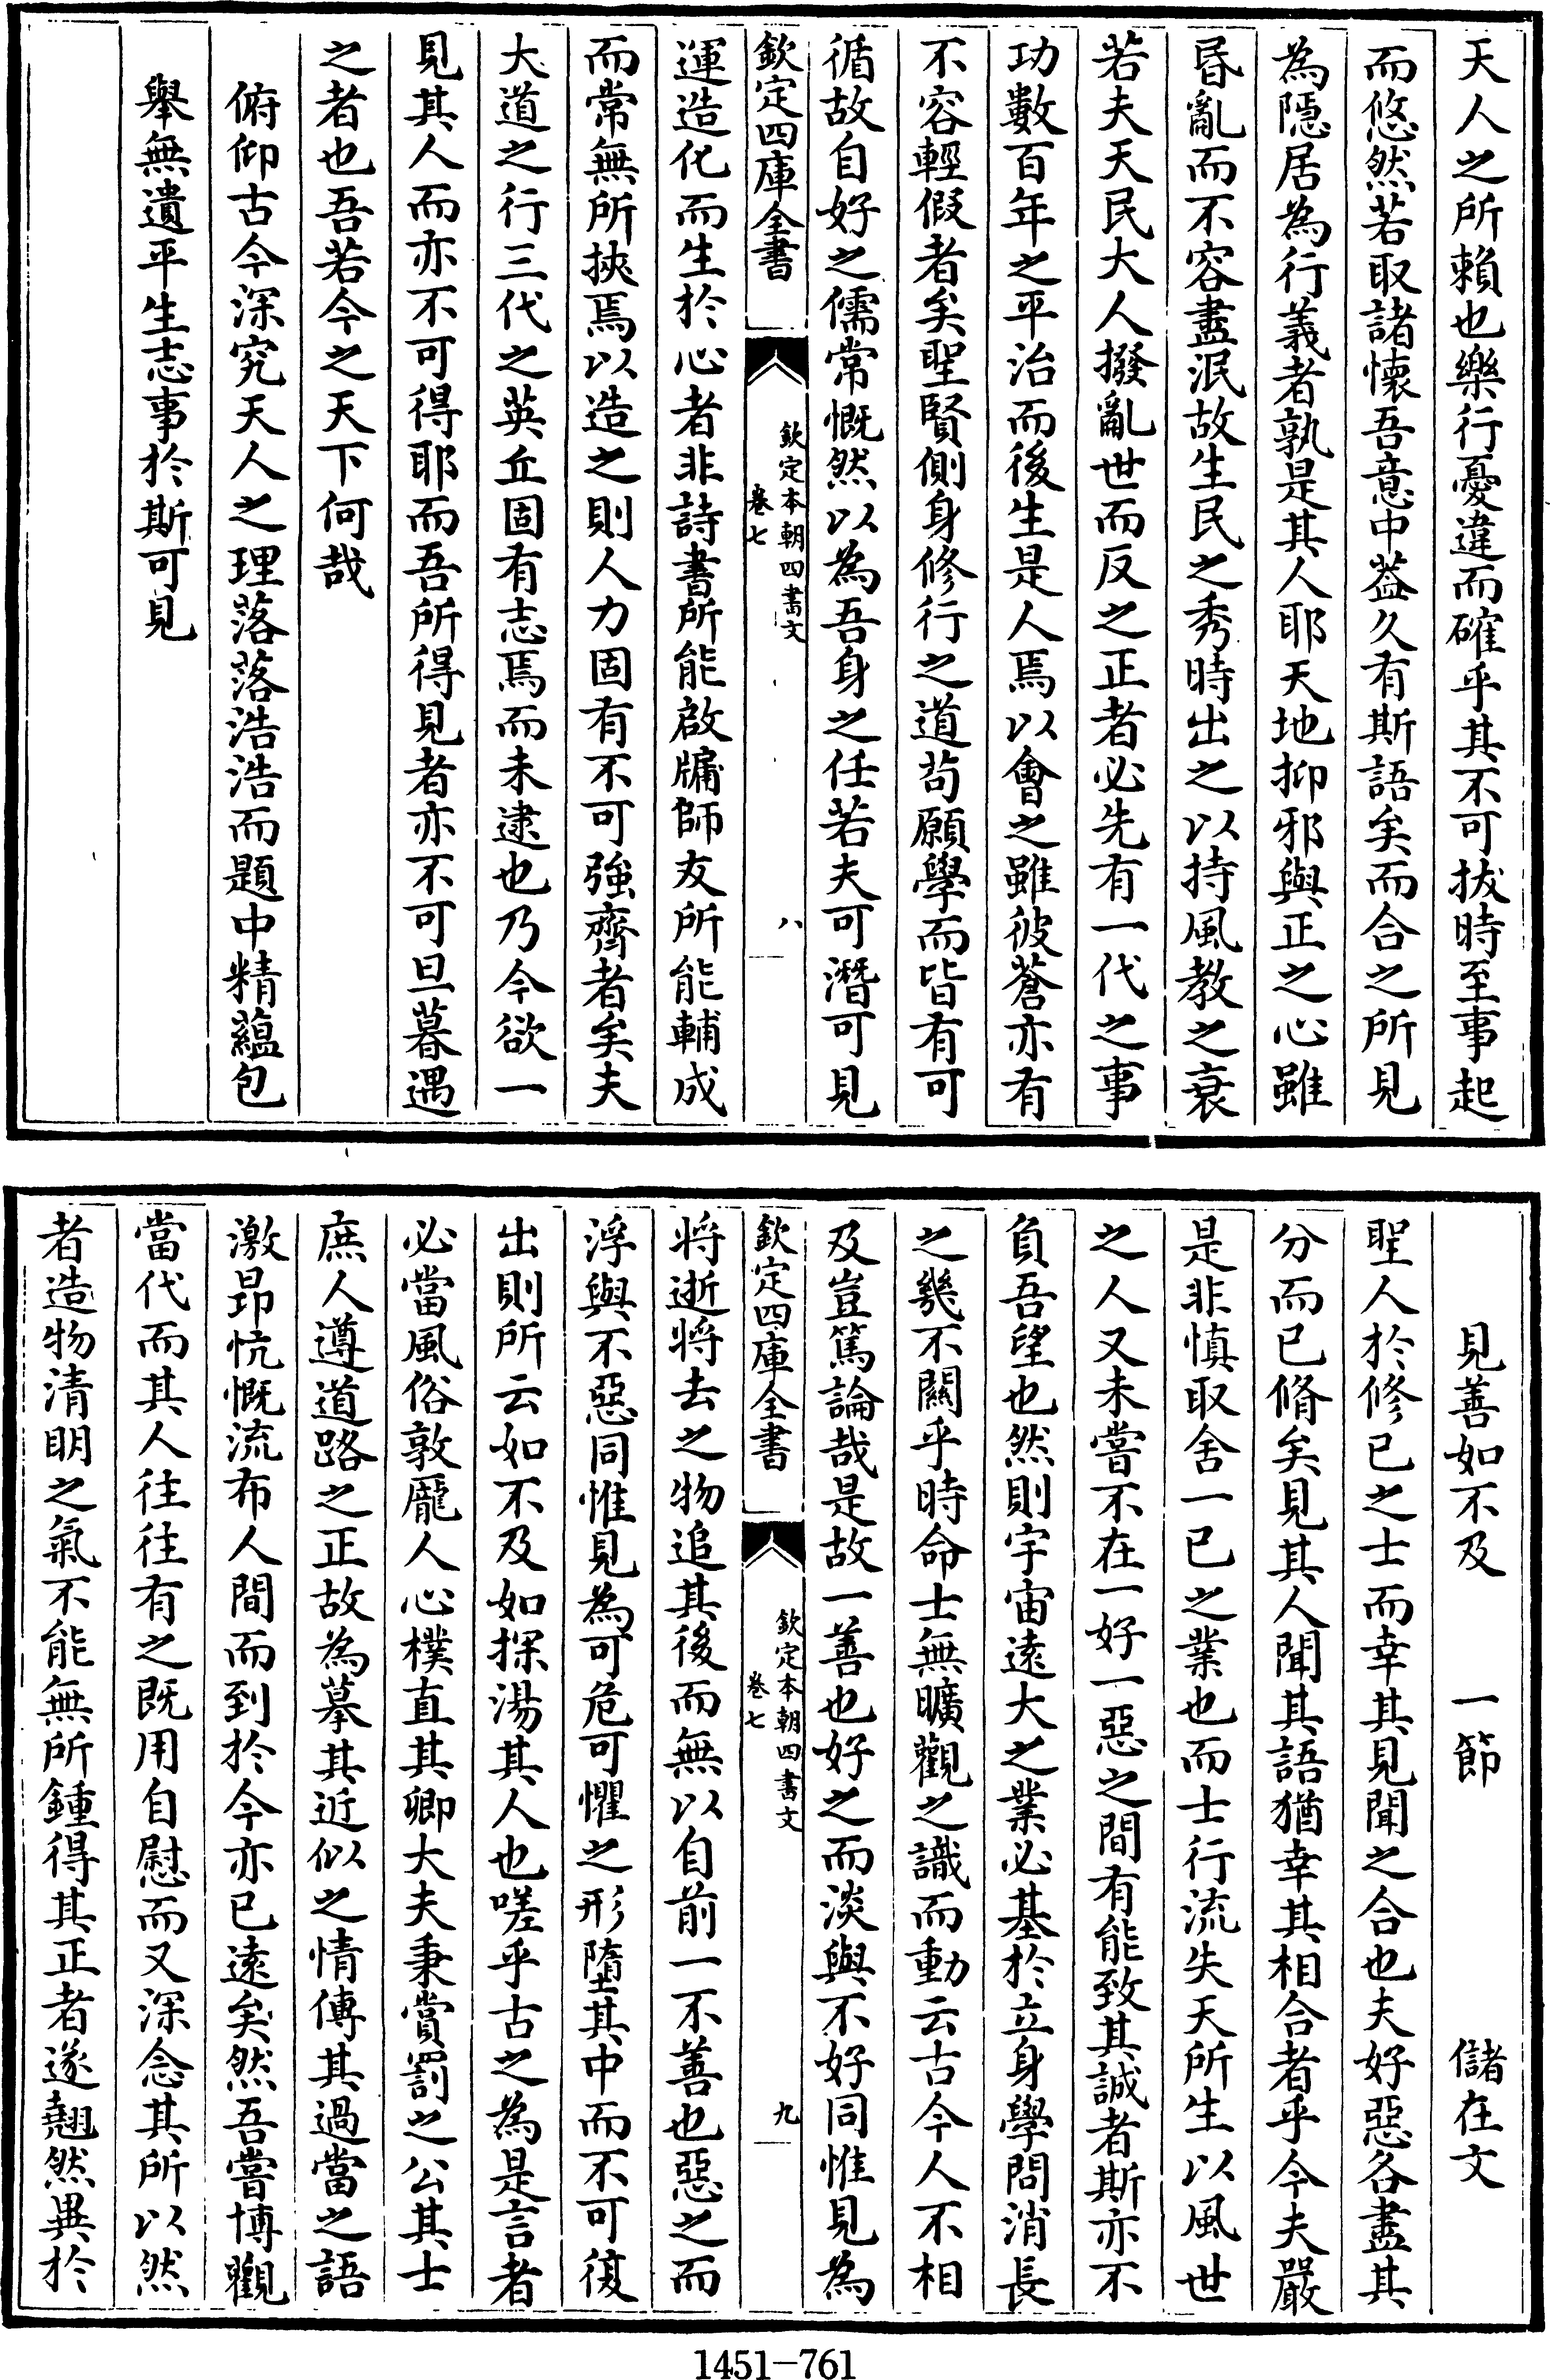 天人之所賴也樂行憂違而確乎其不可拔時至事起
而悠然若取諸懷吾意中葢久有斯語矣而合之所見
為隱居為行義者孰是其人耶天地抑邪與正之心雖
昏亂而不容盡泯故生民之秀時出之以持風教之衰
若夫天民大人撥亂世而反之正者必先有一代之事
功數百年之平治而後生是人焉以會之雖彼蒼亦有
不容輕假者矣聖賢側身修行之道苟願學而皆有可
循故自好之儒常慨然以為吾身之任若夫可潛可見
欽定四庫全書
欽定本朝四書文
卷七
八
運造化而生於心者非詩書所能啟牖師友所能輔成
而常無所挾焉以造之則人力固有不可強齊者矣夫
大道之行三代之英丘固有志焉而未逮也乃今欲一
見其人而亦不可得耶而吾所得見者亦不可旦暮遇
之者也吾若今之天下何哉
俯仰古今深究天人之理落落浩浩而題中精蘊包
舉無遺平生志事於斯可見
見善如不及 一節 儲在文
聖人於修已之士而幸其見聞之合也夫好惡各盡其
分而已脩矣見其人聞其語猶幸其相合者乎今夫嚴
是非慎取舍一已之業也而士行流失天所生以風世
之人又未嘗不在一好一惡之間有能致其誠者斯亦不
負吾望也然則宇宙遠大之業必基於立身學問消長
之幾不關乎時命士無曠觀之識而動云古今人不相
及豈篤論哉是故一善也好之而淡與不好同惟見為
欽定四庫全書
欽定本朝四書文
卷七
九
將逝將去之物追其後而無以自前一不善也惡之而
浮與不惡同惟見為可危可懼之形墮其中而不可復
出則所云如不及如探湯其人也嗟乎古之為是言者
必當風俗敦龐人心樸直其卿大夫秉賞罰之公其士
庶人遵道路之正故為摹其近似之情傳其過當之語
激昻忼慨流布人間而到於今亦已遠矣然吾嘗博觀
當代而其人往往有之既用自慰而又深念其所以然
者造物清明之氣不能無所鍾得其正者遂翹然異於
1451-761